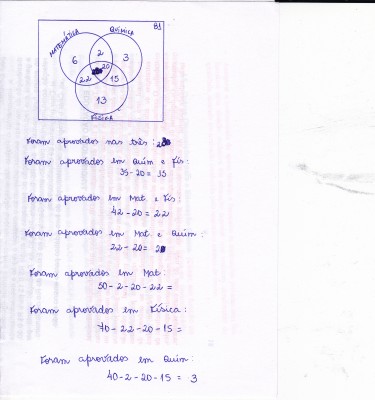 81
MATEMÁTICA
QUÍMICA
6
2
3
20
22
15
13
FÍSICA
Foram aprovados nas três: 20
Foram aprovados em Quim e Fís:
35-20 = 15
Foram aprovados em Mat e Fís:
42-20 = 22
Foram aprovados em Mat e Quim:
22-20= 2
Foram aprovados em Mat:
50-2-20-22 =
Foram aprovados em Física:
70-22-20-15 =
Foram aprovados em Quim:
40-2-20-15 = 3